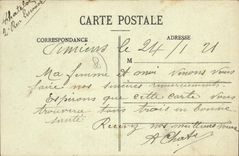 CARTE POSTALE
CORRESPONDANCE
ADRESSE
le 24/1/21
M
Ma femme et moi venons vous
faire nos sincères remerciements.
Espérons que cette carte vous
trouvera tous trois en bonne
santé
nos meilleurs vœux
A. Chat